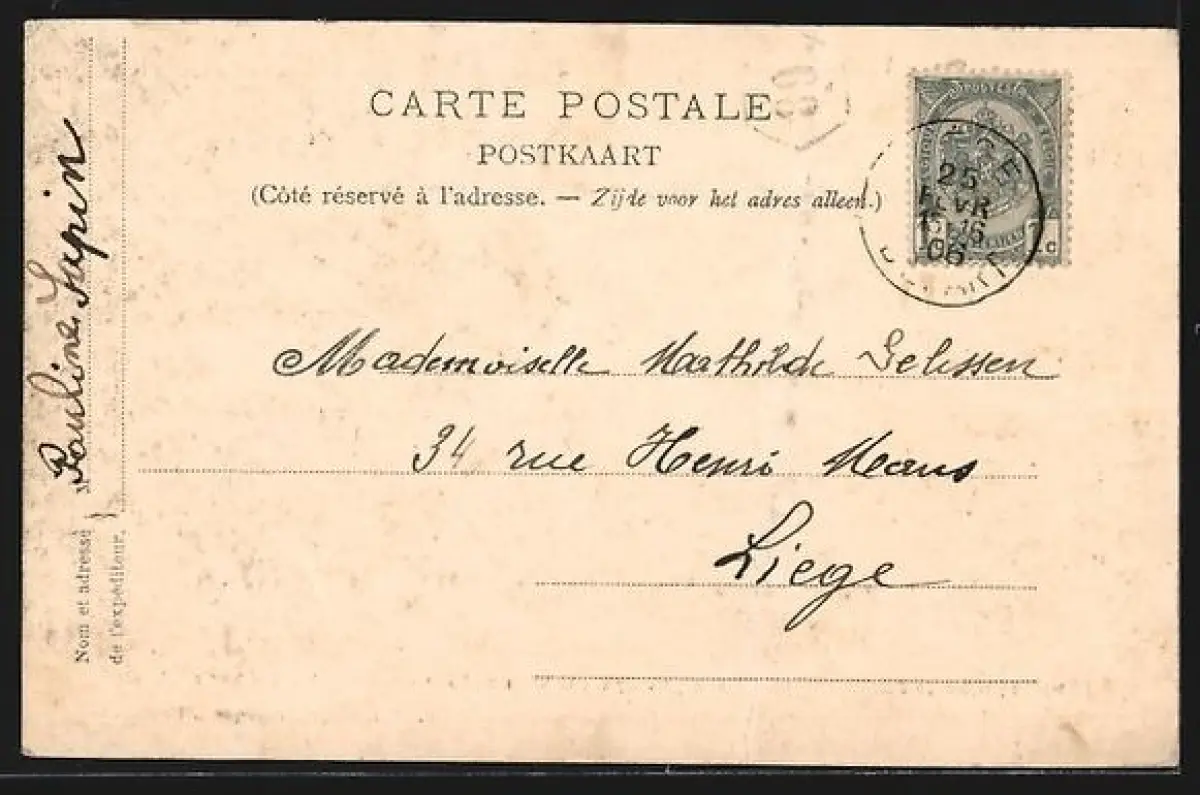 CARTE POSTALE
POSTKAART
(Côté réservé à l'adresse. — Zijde voor het adres alleen.)
25
FEVR
15-16
06
Mademoiselle Maathilde Gelissen
34 rue Henri Maus
Liege
Pauline Sapin
Nom et adresse
de l'expéditeur.